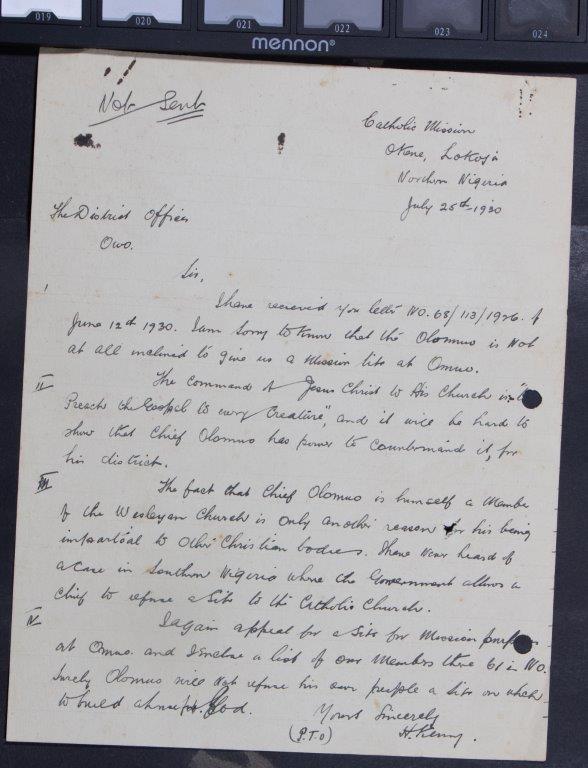 019 020 021 022 023 024
mennon®
Not Sent
Catholic Mission
Okene, Lokoja
Northern Nigeria
July 25th 1930
The District Officer
Owo.
Sir,
I
I have recieved you letter NO. 68/113/1926 of
June 12th 1930. I am sorry to know that the Olomuo is Not
at all inclined to give us a Mission Site at Omuo.
II
The command of Jesus Christ to His Church is "to
Preach the Gospel to every Creature", and it will be hard to
show that Chief Olomuo has power to countermand it, for
his district.
III
The fact that Chief Olomuo is himself a Member
of the Wesleyan Church is only another reason for his being
impartial to other Christian bodies. I have never heard of
a case in Southern Nigeria where the Government allows a
Chief to refuse a Site to the Catholic Church.
IV
I again appeal for a Site for Mission
at Omuo and I enclose a list of our Members there 61 in NO.
Surely Olomuo will Not refuse his own people a site on which
to build a house for God.
Yours Sincerely
(P.T.O)
H. Kenny.